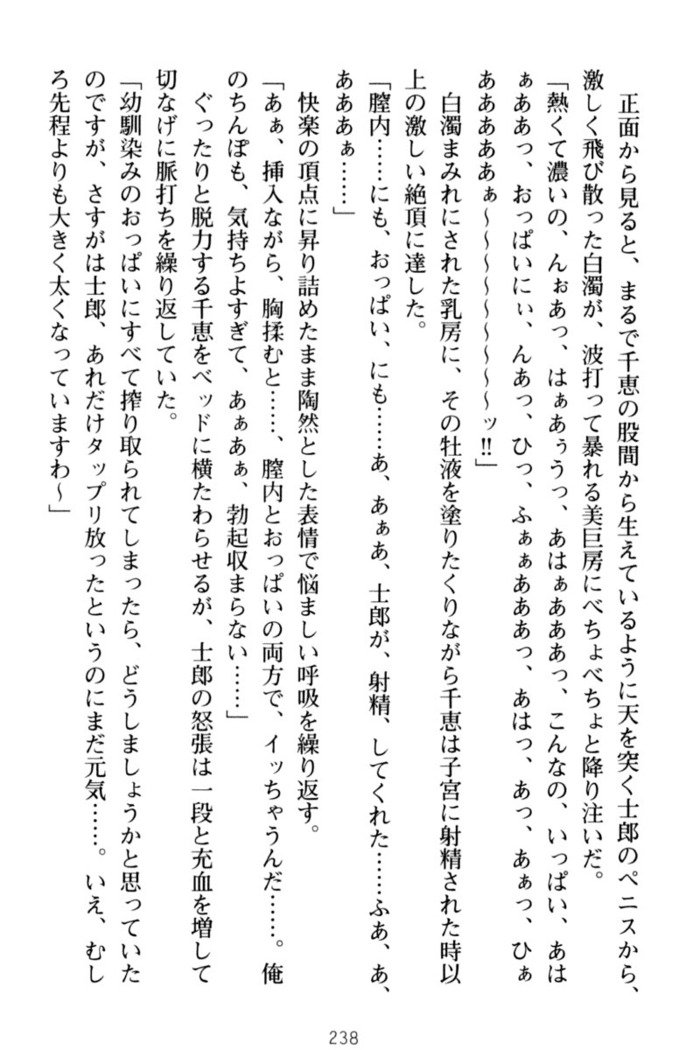 正面から見ると、まるで千恵の股間から生えているように天を突く士郎のペニスから、
激しく飛び散った白濁が、波打って暴れる美巨房にべちょべちょと降り注いだ。
「熱くて濃いの、んぉあっ、はぁあぅうっ、あはぁあああっ、こんなの、いっぱい、あは
ぁああっ、おっぱいにぃ、んあっ、ひっ、ふぁぁあああっ、あはっ、あっ、あぁっ、ひぁ
ああああああぁ～～～～～～～～ッ!!」
白濁まみれにされた乳房に、その牡液を塗りたくりながら千恵は子宮に射精された時以
上の激しい絶頂に達した。
「膣内……にも、おっぱい、にも……あ、あぁあ、士郎が、射精、してくれた……ふあ、あ、
あああぁ……」
快楽の頂点に昇り詰めたまま陶然とした表情で悩ましい呼吸を繰り返す。
「あぁ、挿入ながら、胸揉むと……、膣内とおっぱいの両方で、イッちゃうんだ……。俺
のちんぽも、気持ちよすぎて、あぁあぁ、勃起収まらない……」
ぐったりと脱力する千恵をベッドに横たわらせるが、士郎の怒張は一段と充血を増して
切なげに脈打ちを繰り返していた。
「幼馴染みのおっぱいにすべて搾り取られてしまったら、どうしましょうかと思っていた
のですが、さすがは士郎、あれだけタップリ放ったというのにまだ元気……。いえ、むし
ろ先程よりも大きく太くなっていますわ～」
238